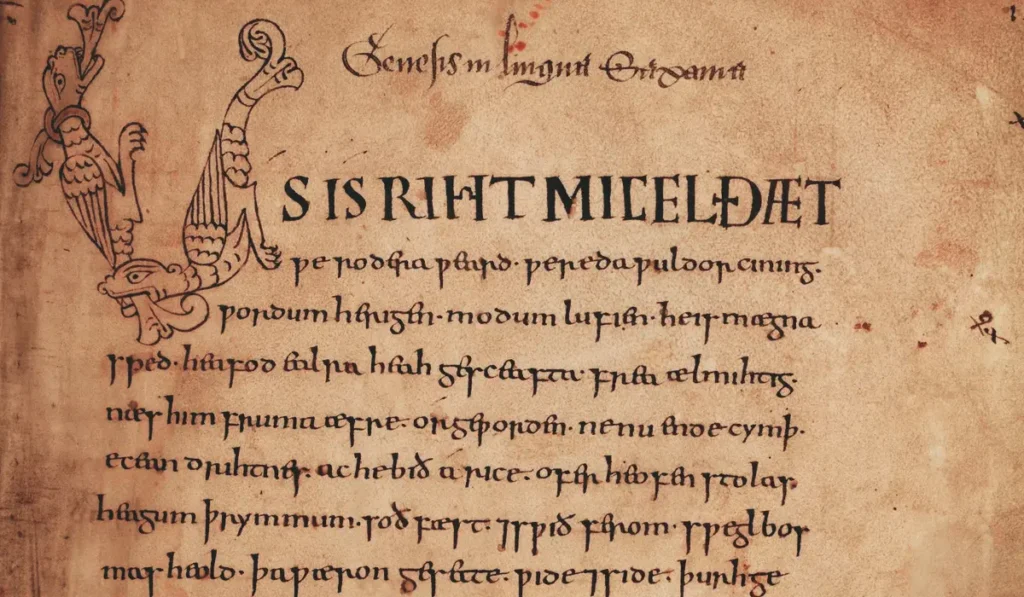 Genesis in lingua Saxania
US IS RIHT MICEL ÐÆT
ƿe rodera ƿeard· ƿereda ƿuldor cining·
ƿordum herigen· modum lufien· heis mægna
sped· heafod ealra heah gesceafta· frea ælmihtig·
næs him fruma æfre· or geƿorden· ne nu ende cymþ·
ecean drihtnes· ac he bið a rice· ofer heofen stolas·
heagum þrymmum· soð fæst· ⁊ sƿið feorm· sƿegl bos
mas heold· þa ƿæron gesette· ƿide ⁊ side· þurh ge